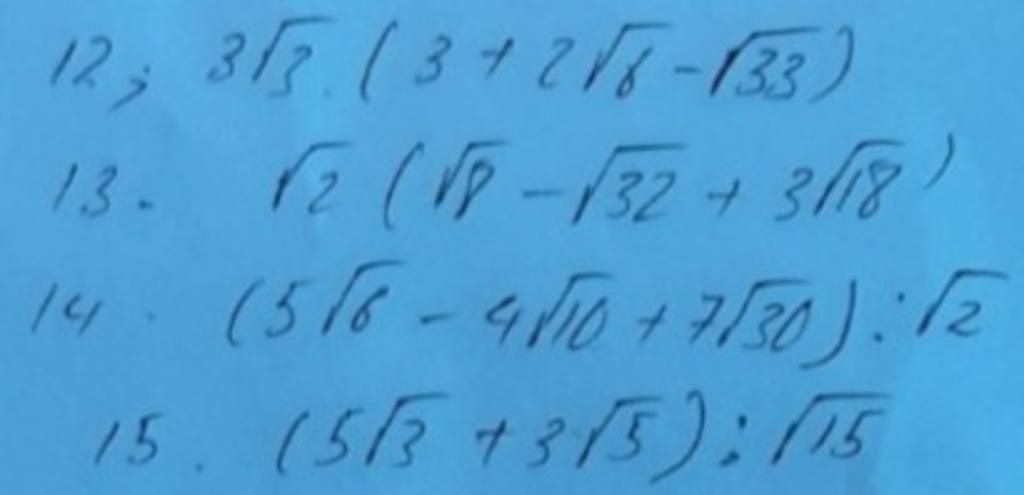 12; 3√3 (3 + 2√6 - √33)
13. √2 (√8 - √32 + 3√18)
14. (5√6 - 4√10 + 7√30) : √2
15. (5√3 + 3√5) : √15